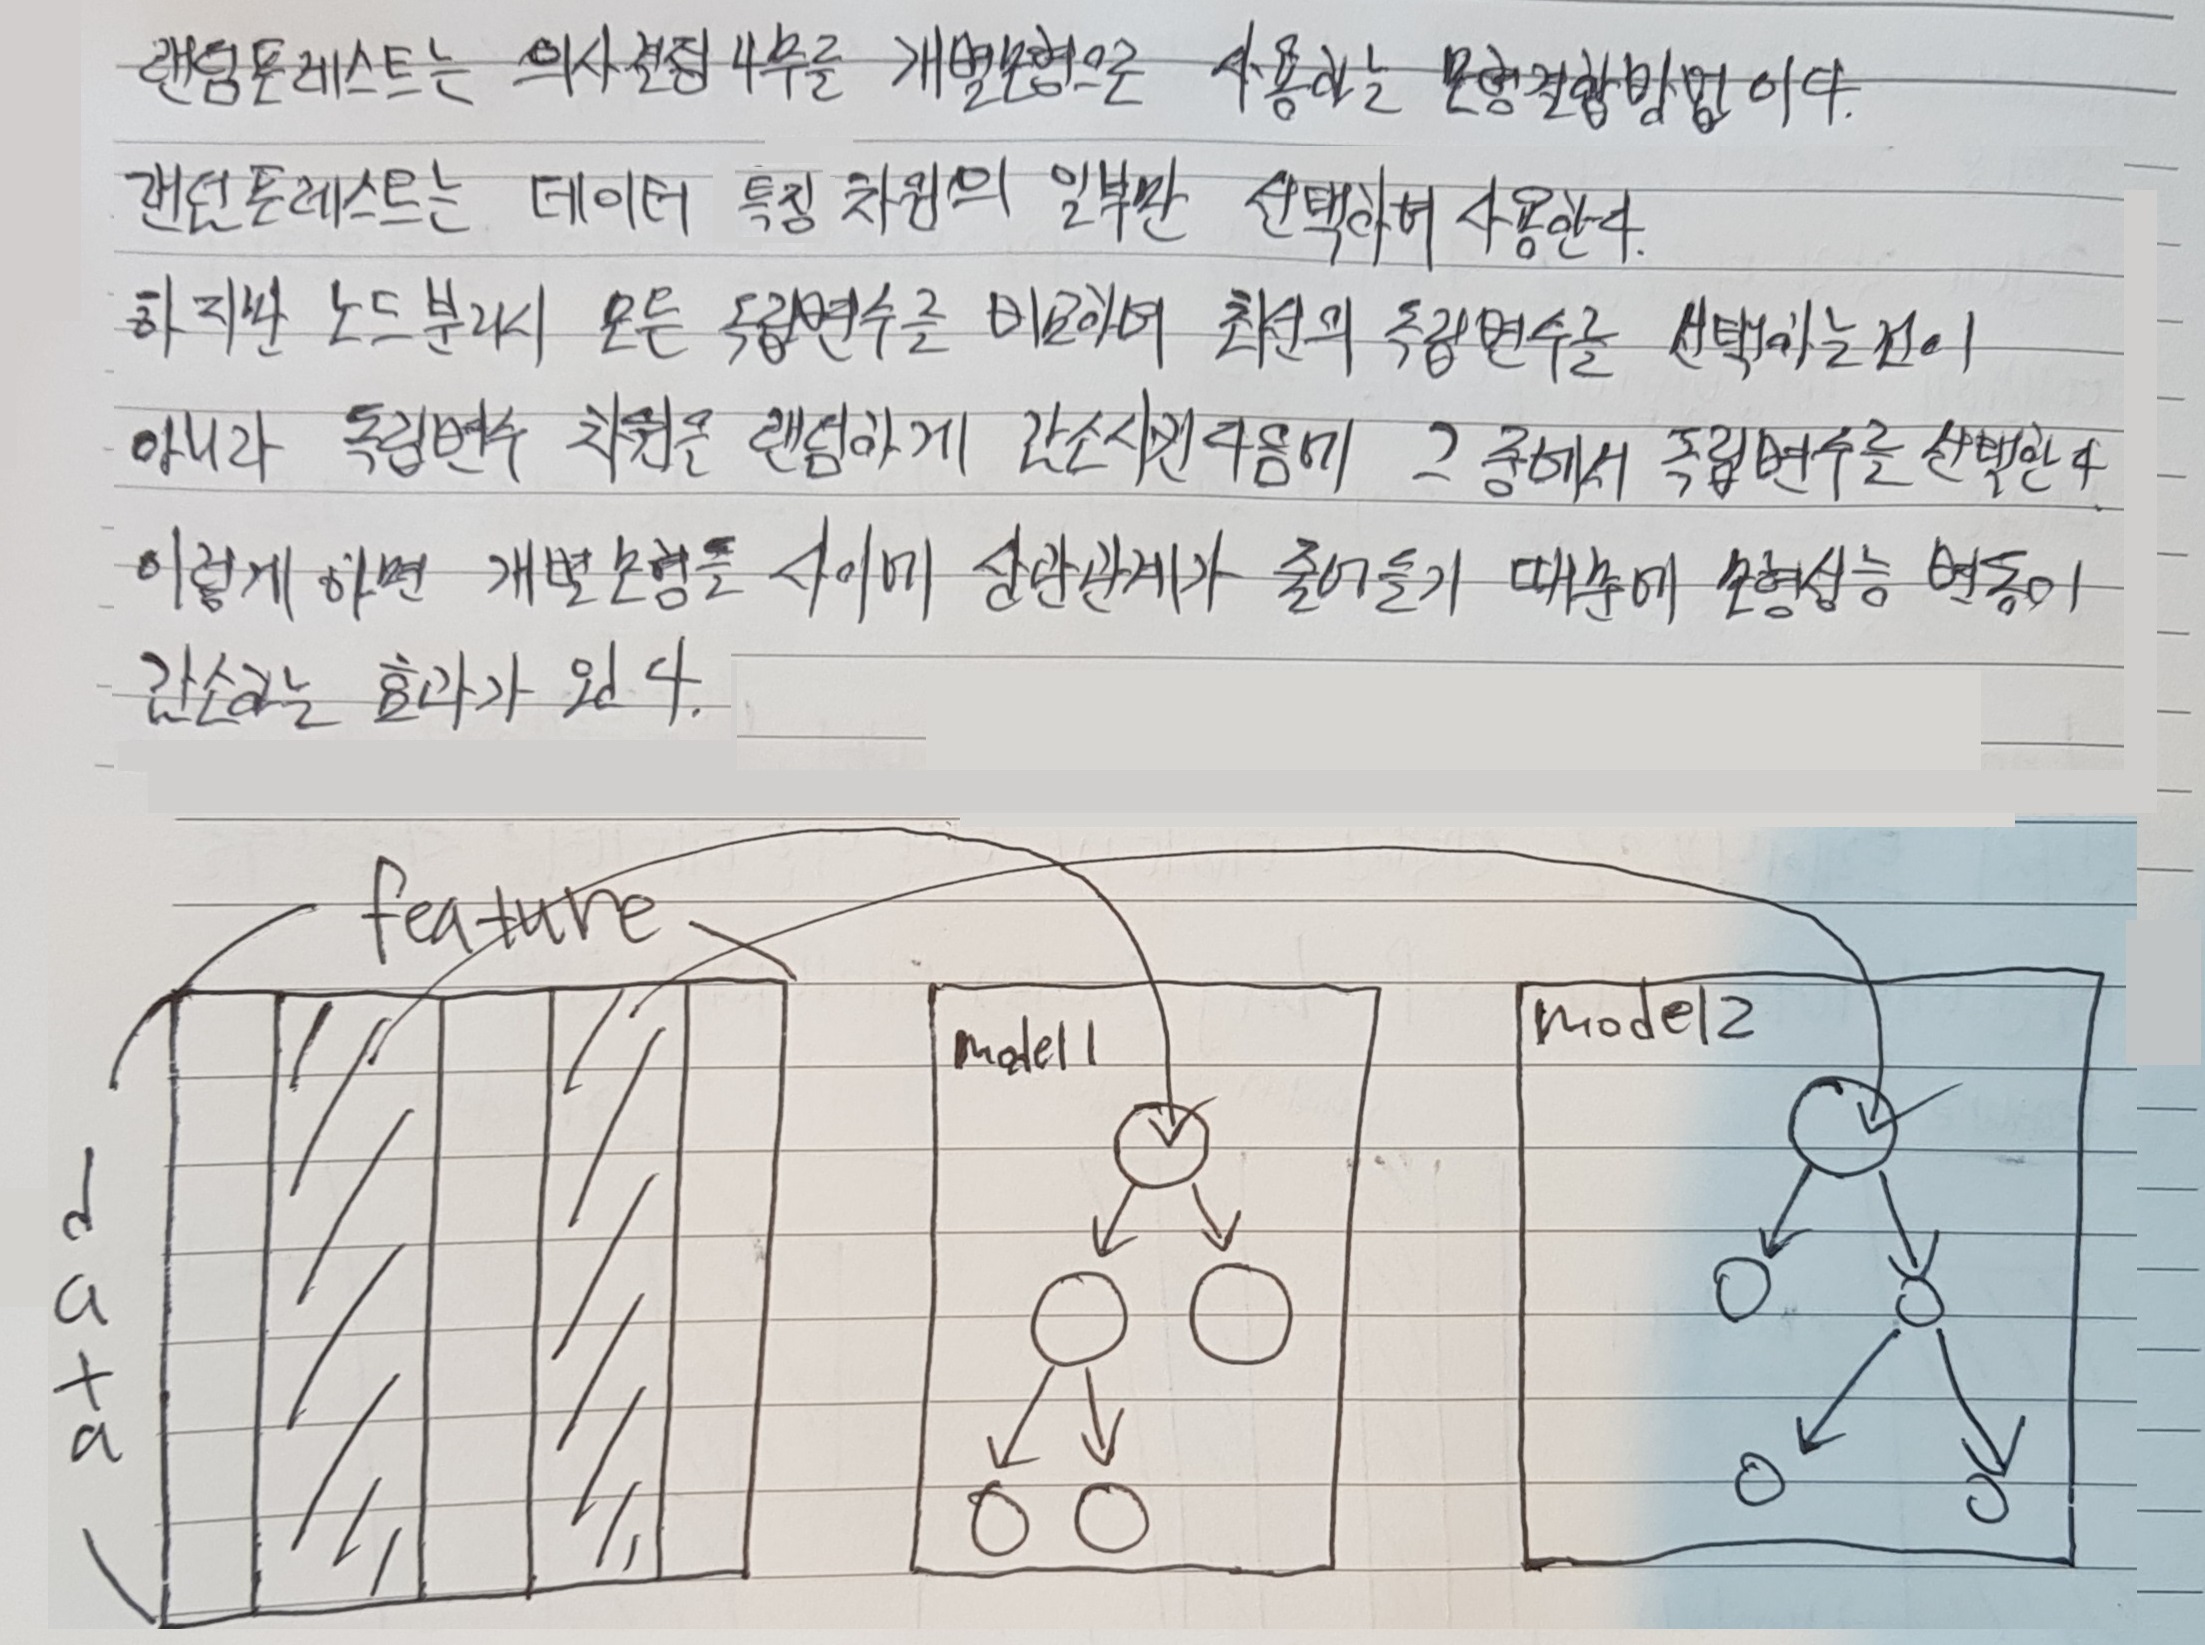 랜덤포레스트는 의사결정나무를 개별모형으로 사용하는 모형결합방법이다.
랜덤포레스트는 데이터 특징 차원의 일부만 선택하여 사용한다.
하지만 노드분리시 모든 독립변수를 비교하여 최선의 독립변수를 선택하는것이
아니라 독립변수 차원을 랜덤하게 감소시킨다음에 그 중에서 독립변수를 선택한다
이렇게 하면 개별모형들 사이에 상관관계가 줄어들기 때문에 모형성능 변동이
감소하는 효과가 있다.
feature
data
model 1
model 2